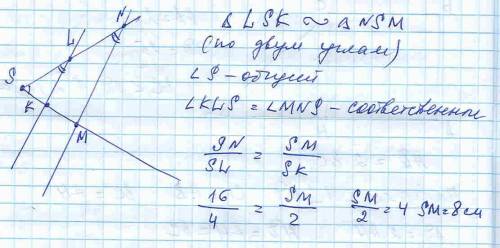 N
L
S
K
M
△ LSK ∾ △ NSM
(по двум углам)
∠S - общий
∠KLS = ∠MNS - соответственные
SN/SL = SM/SK
16/4 = SM/2 SM/2 = 4 SM = 8 см